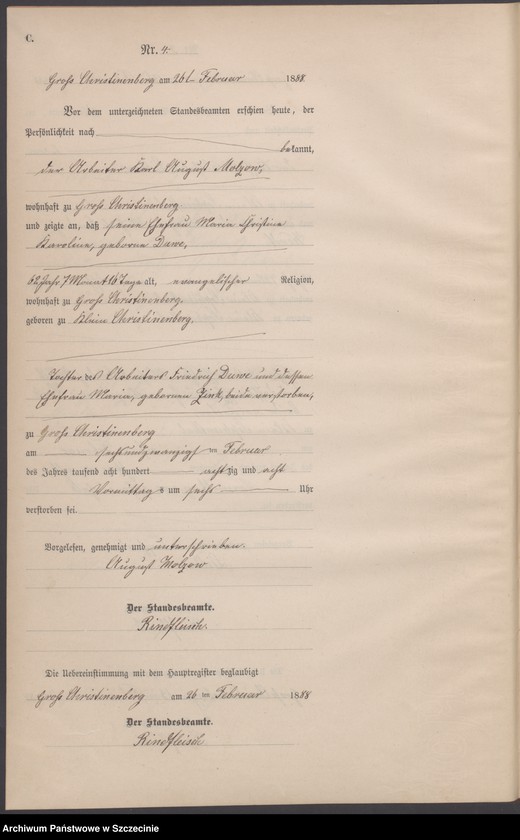 C.
Nr. 4.
Groß Christinenberg am 26 ten Februar 1888.
Vor dem unterzeichneten Standesbeamten erschien heute, der
Persönlichkeit nach
bekannt,
der Arbeiter Karl August Molzow,
wohnhaft zu Groß Christinenberg
und zeigte an, daß seine Ehefrau Maria Christine
Karoline, geborne Duwe,
62 Jahr 7 Monat 16 Tage alt, evangelischer Religion,
wohnhaft zu Groß Christinenberg,
geboren zu Klein Christinenberg,
Tochter des Arbeiters Friedrich Duwe und dessen
Ehefrau Maria, gebornen Zink, beide verstorben,
zu Groß Christinenberg
am sechsundzwanzigsten Februar
des Jahres tausend acht hundert achtzig und acht
Vormittags um sechs Uhr
verstorben sei.
Vorgelesen, genehmigt und unterschrieben.
August Molzow
Der Standesbeamte.
Rindfleisch.
Die Uebereinstimmung mit dem Hauptregister beglaubigt
Groß Christinenberg am 26 ten Februar 1888
Der Standesbeamte.
Rindfleisch
Archiwum Państwowe w Szczecinie